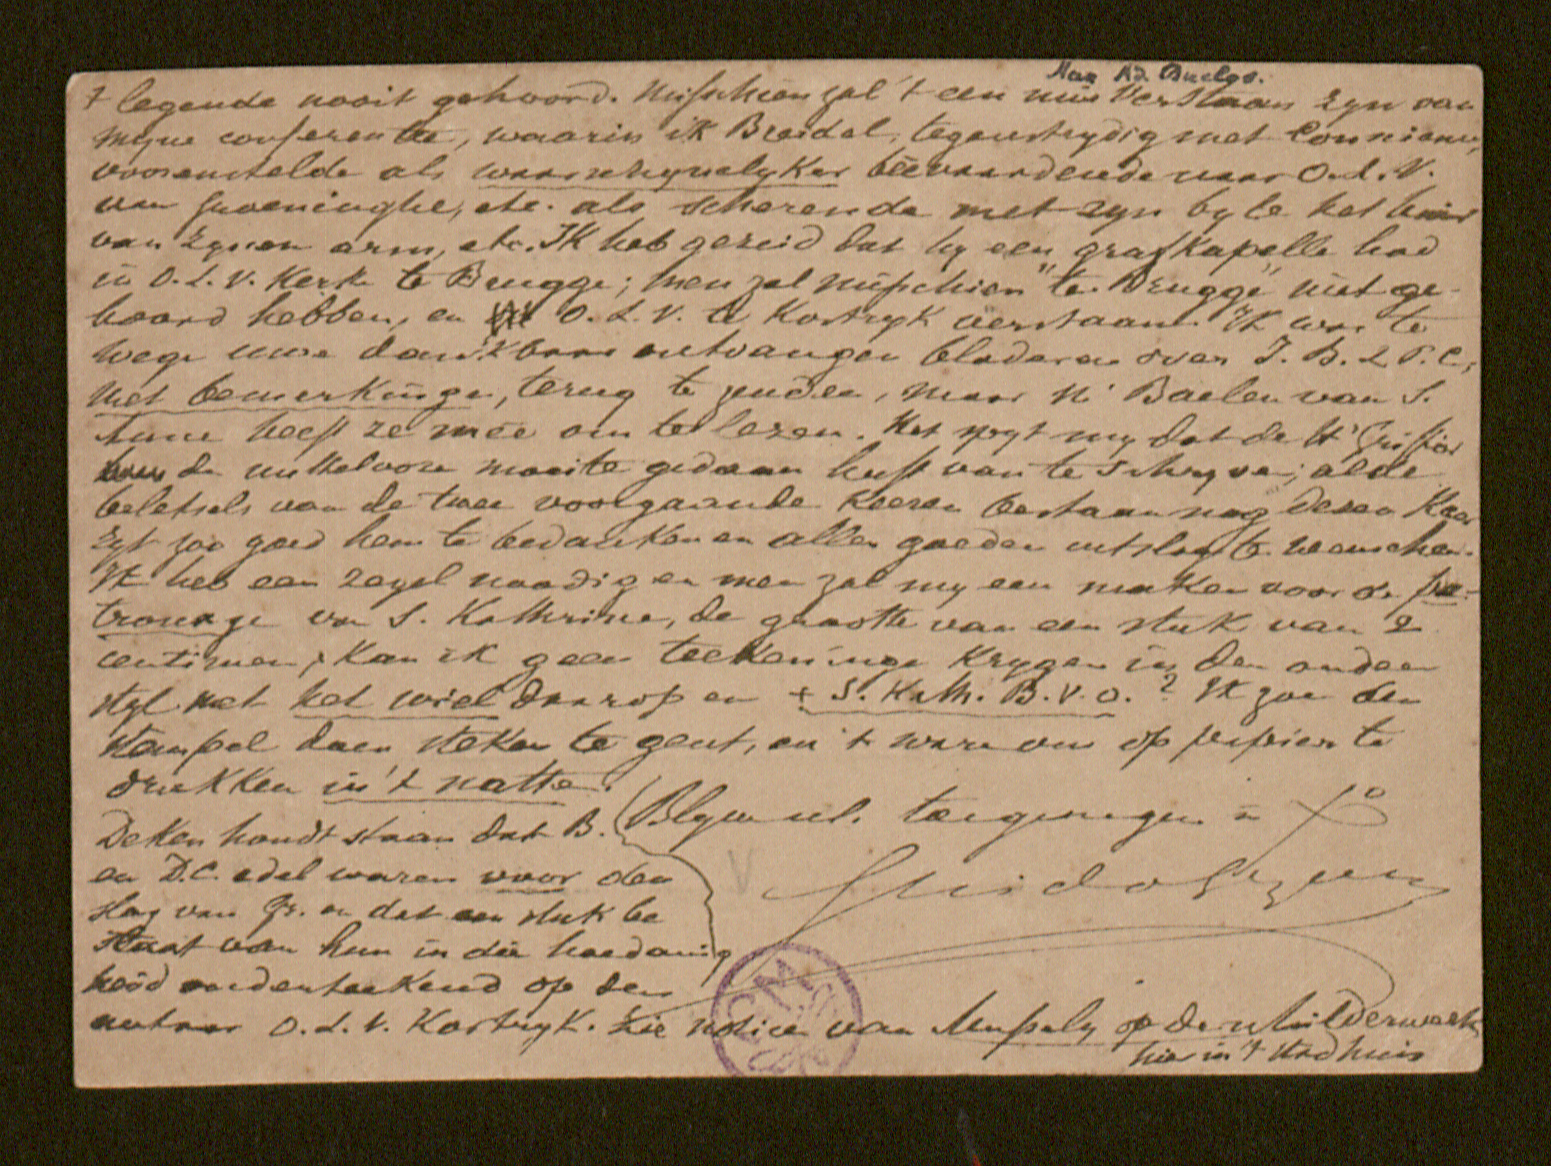 Aan Ad. Duclos.
'k legende nooit gehoord. Misschien zal 't een misverstaan zyn van
myne conferentie, waarin ik Breidel, tegenstrydig met Conscience,
voorenstelde als waarschynelyker beêvaardende naar O.L.V.
van Groeninghe, etc. als scherende met zyn byle het hair
van zynen arm, etc. Ik heb gezeid dat hy een grafkapelle had
in O.L.V. Kerk te Brugge; men zal misschien "te Brugge" niet ge-
hoord hebben, en O.L.V. te Kortryk verstaan. Ik was te
wege uwe dankbaar ontvangen bladeren over J.B. & P.C.,
met bemerkinge, terug te zenden, maar Mr Baelen van S.
Anne heeft ze mêe om te lezen. Het spyt my dat de Hr
de moeite gedaan heeft van te schryven; al de
beletsels van de twee voorgaande keeren bestaan nog dezen keer
Zyt zoo goed hem te bedanken en allen goeden uitslag te wenschen.
Ik heb een zegel noodig en men zal my een maken voor de pa-
tronage van S. Kathrine, de grootte van een stuk van 2
centimen, kan ik geen teekeninge krygen in den ouden
styl met het wiel daarop en + S. Kath. B.V.O.? Ik zou den
stampel doen steken te Gent, en 't ware om op papier te
drukken in 't natte.
Blyve ul. toegenegen in Xo
Guido Gezelle
Deken houdt staan dat B.
en D.C. edel waren voor den
slag van Gr. en dat een stuk be
staat van hun in die hoedanig
heid onderteekend op den
autaar O.L.V. Kortryk. Zie notice van Mussely op de schilderwerken
hier in 't stadhuis